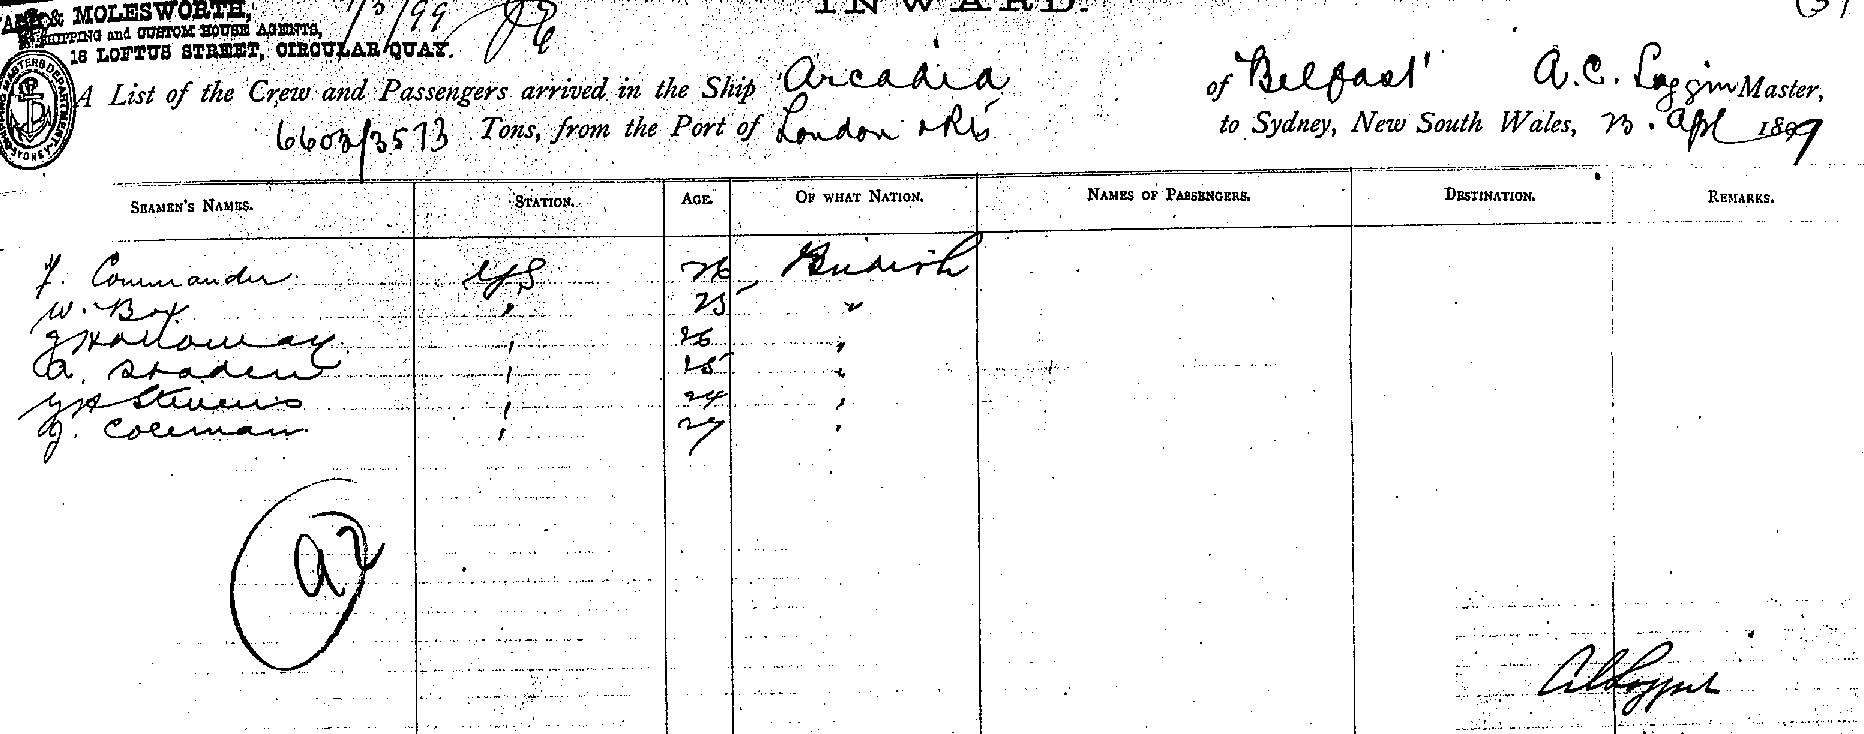 & MOLESWORTH,
SHIPPING and CUSTOM HOUSE AGENTS,
18 LOFTUS STREET, CIRCULAR QUAY.
INWARD.
A List of the Crew and Passengers arrived in the Ship Arcadia of Belfast A.C. Loggin Master,
6603/3573 Tons, from the Port of London to Sydney, New South Wales, 23. Apl 1899
SEAMEN'S NAMES. STATION. AGE. OF WHAT NATION. NAMES OF PASSENGERS. DESTINATION. REMARKS.
F. Commander 26 British
W. Box " 25 "
J Holloway " 26 "
A. Staden " 25 "
Stevens " 24 "
J. Coleman " 27 "
A2